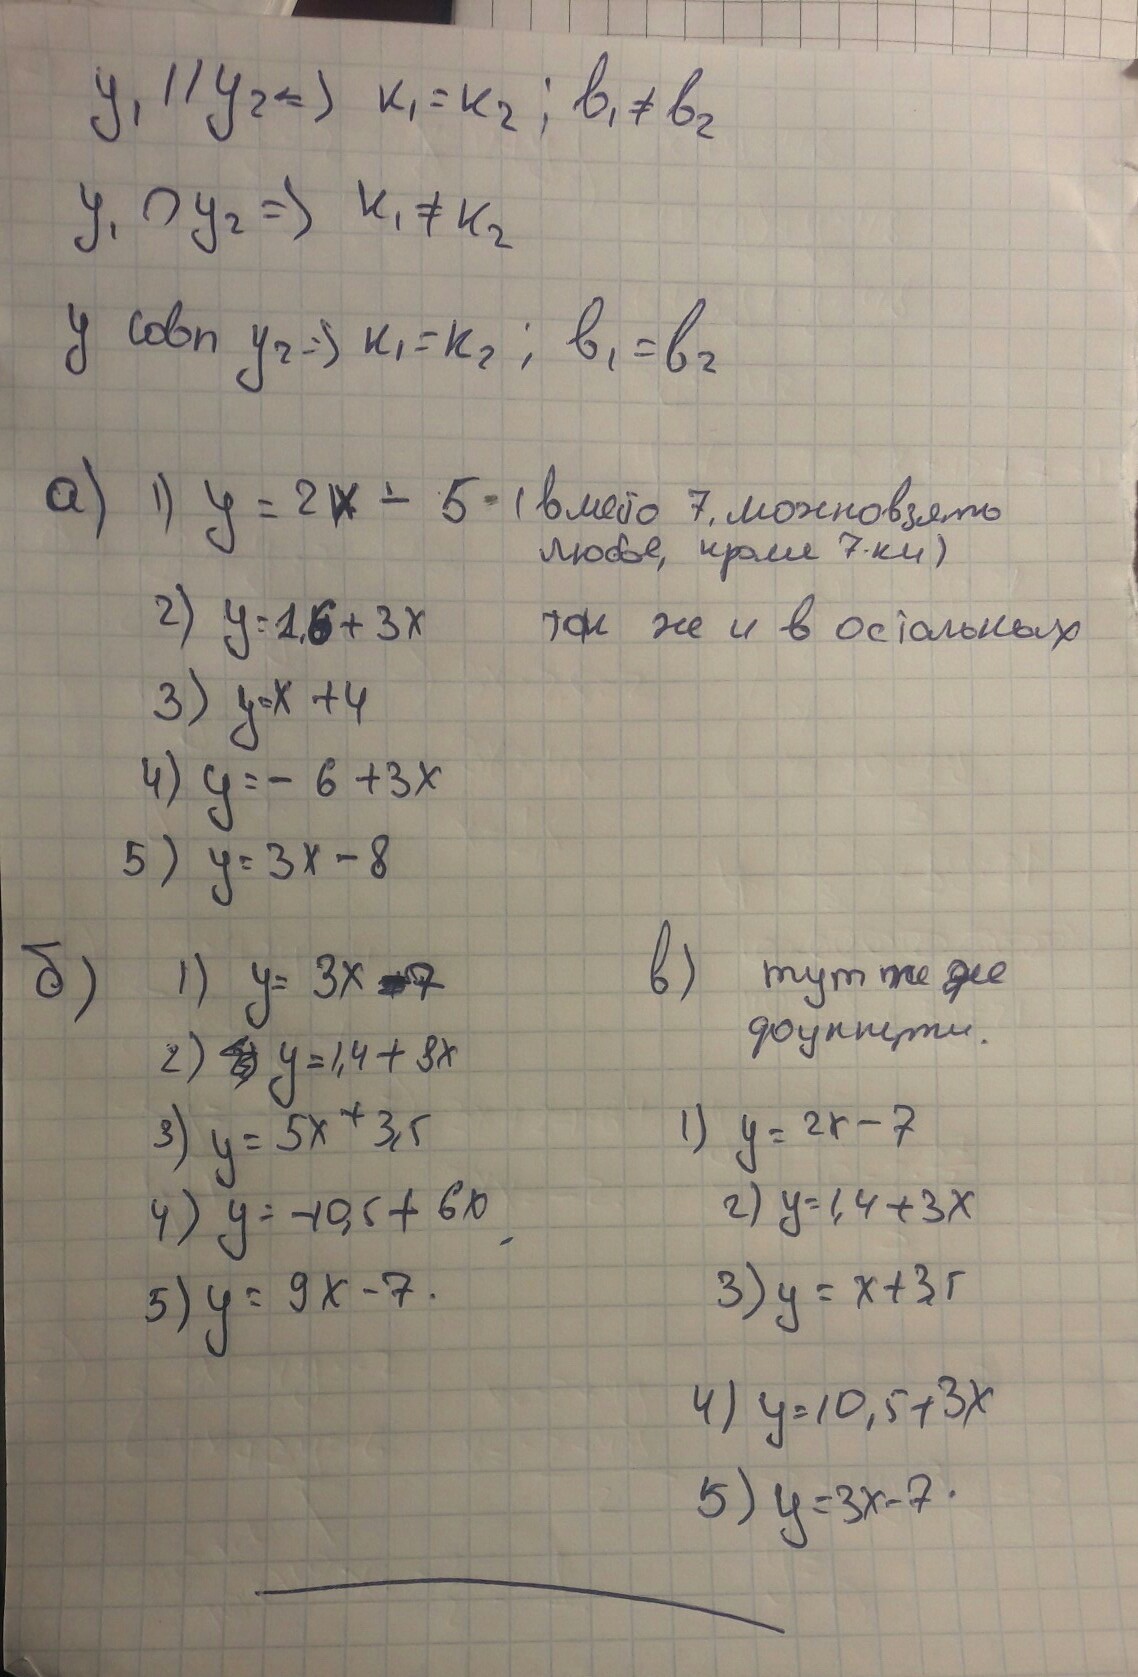 y₁ // y₂ => к₁ = к₂ ; в₁ ≠ в₂
y₁ ∩ y₂ => к₁ ≠ к₂
y совп y₂ => к₁ = к₂ ; в₁ = в₂
а) 1) y = 2x - 5 (вместо 7, можно взять
любое, кроме 7-ки)
2) y = 1,6 + 3x так же и в остальных
3) y = x + 4
4) y = - 6 + 3x
5) y = 3x - 8
б) 1) y = 3x - 7
2) y = 1,4 + 8x
3) y = 5x + 3,5
4) y = -10,5 + 6x
5) y = 9x - 7.
в) тут те же
функции.
1) y = 2x - 7
2) y = 1,4 + 3x
3) y = x + 3,5
4) y = 10,5 + 3x
5) y = 3x - 7.